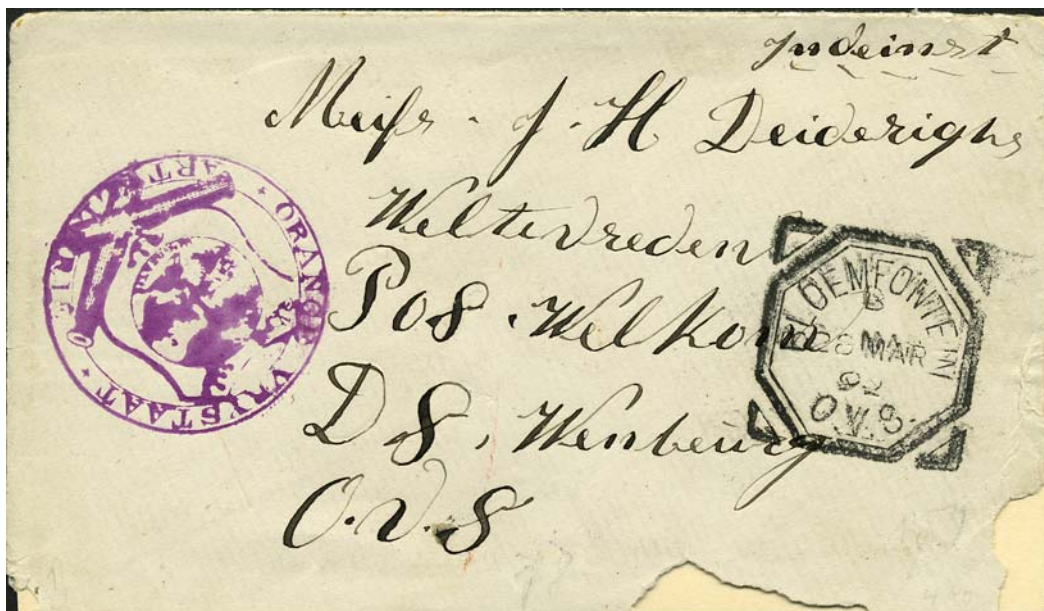 Indeinst
Meifs. J. H Deiderighs
Weltevreden
Pos. Welkom
D S. Wenburg
O.V.S
ORANGE VRYSTAAT
BLOEMFONTEIN
B
28 MAR
92
O.V.S.